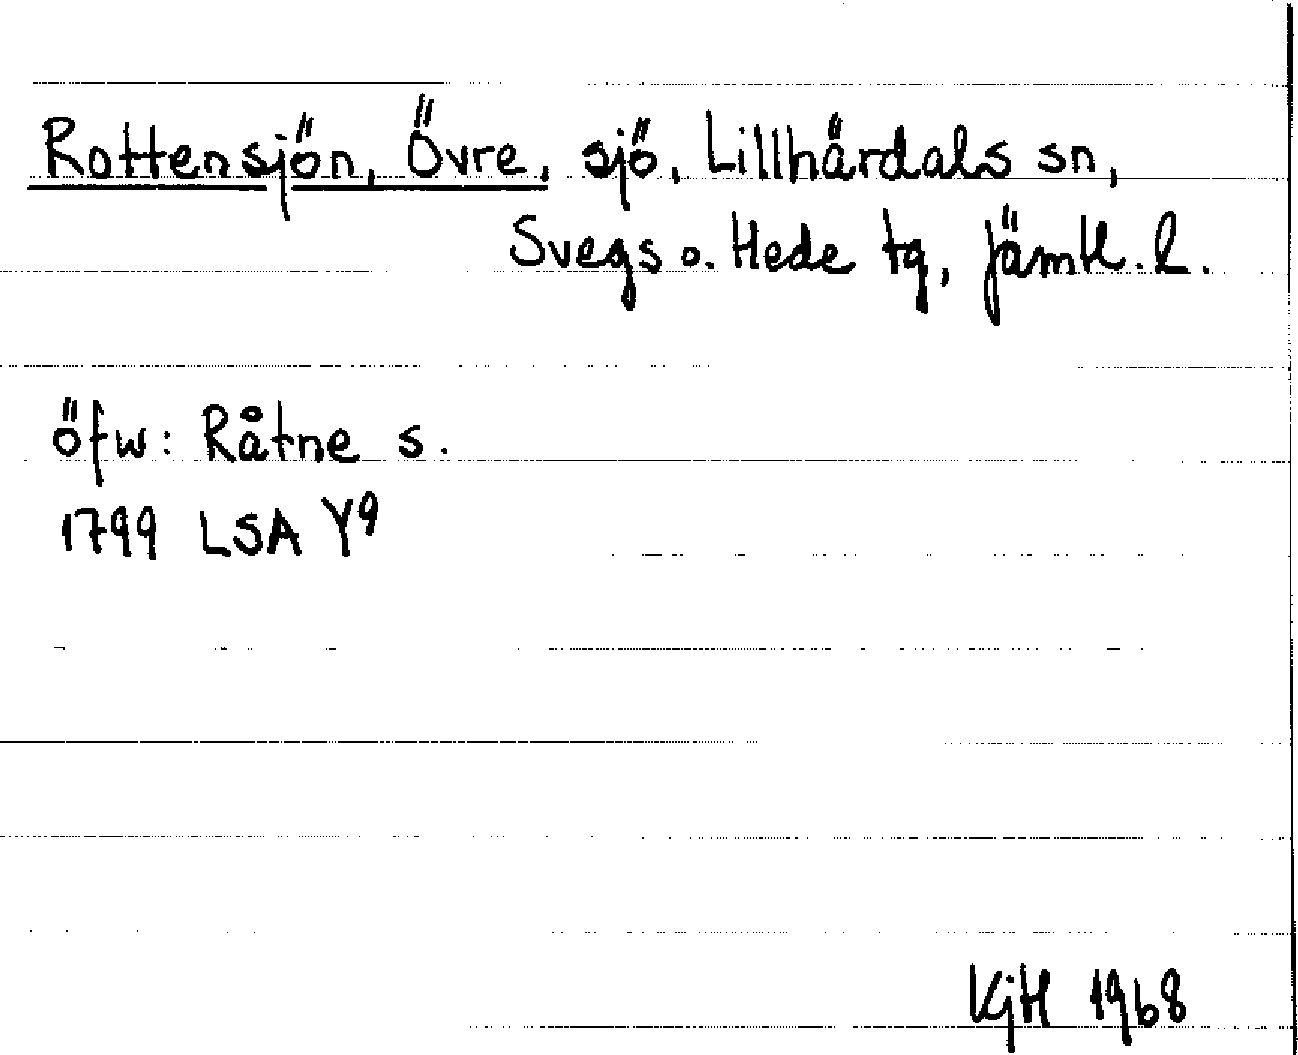 Rottensjön, Övre, sjö, Lillhärdals sn,
Svegs o. Hede tg, Jämtl. l.
öfw: Råtne s.
1799 LSA Y9
KjH 1968